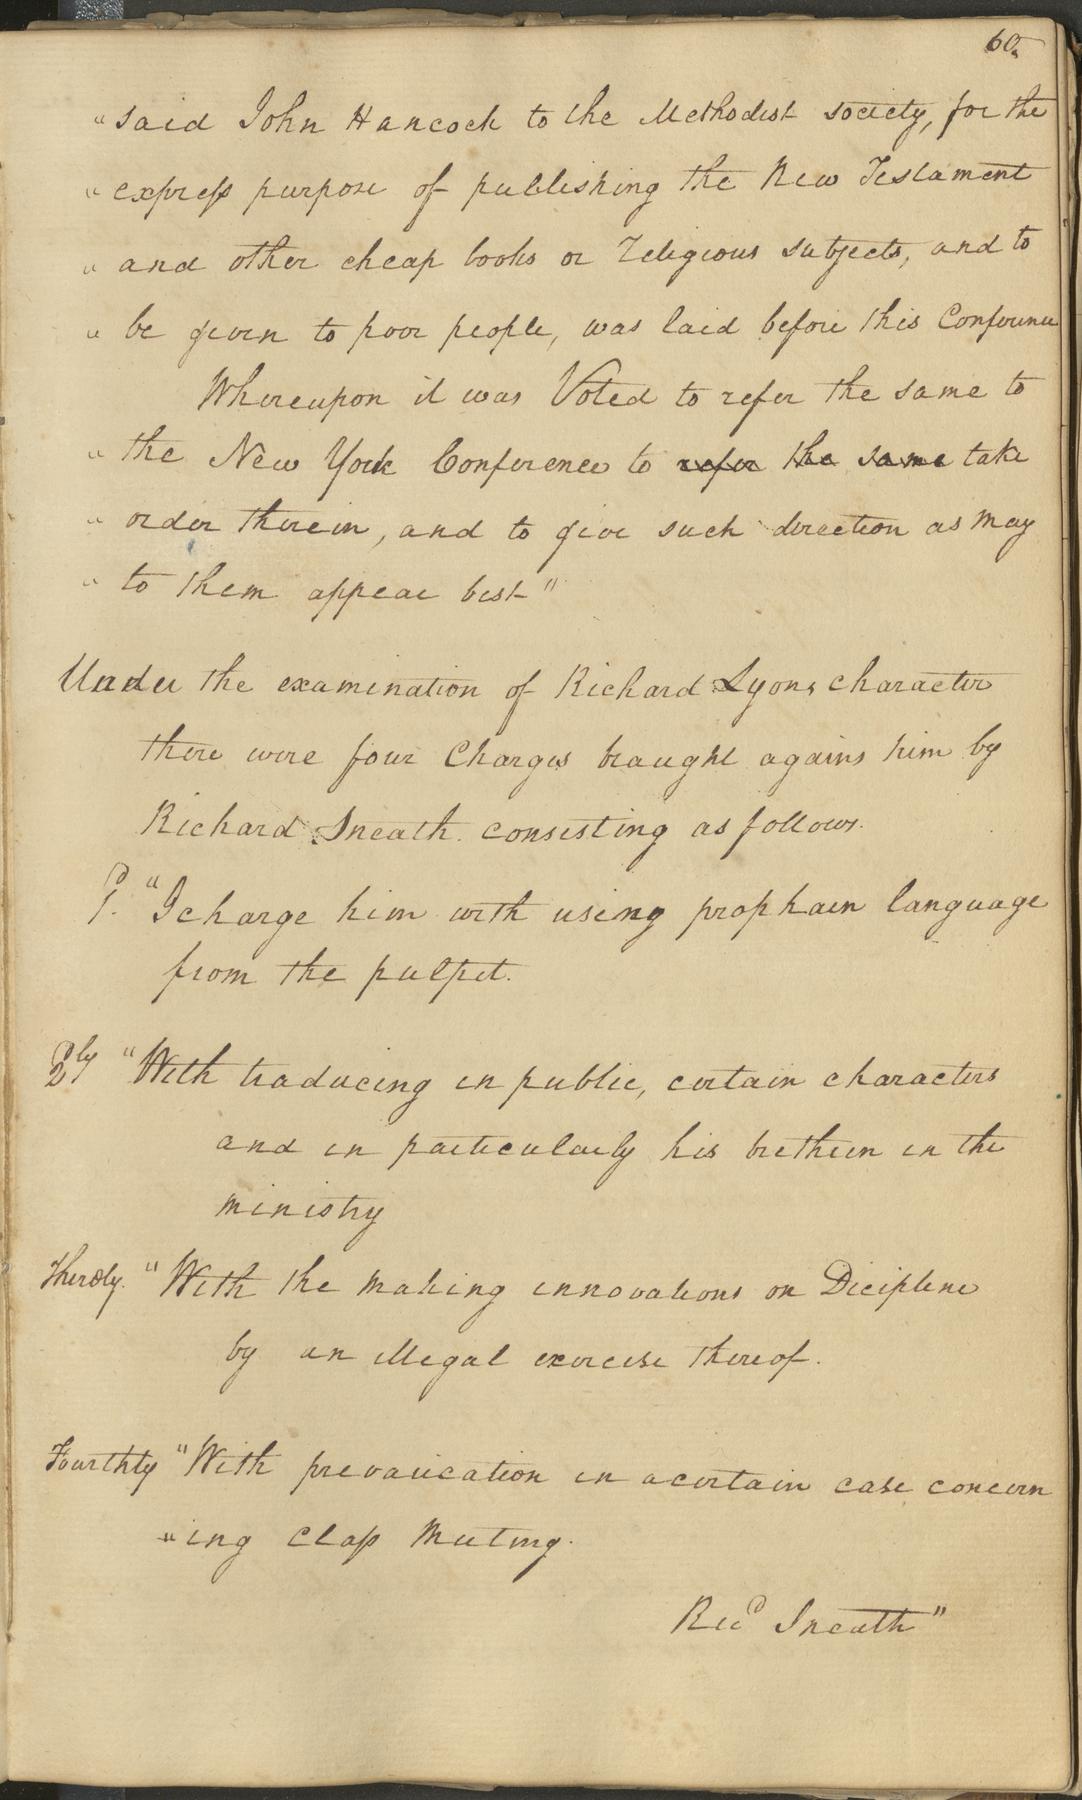 60.
"said John Hancock to the Methodist society, for the
"express purpose of publishing the New Testament
"and other cheap books or religious subjects, and to
"be given to poor people, was laid before this Conference
Whereupon it was Voted to refer the same to
"the New York Conference to refer the same take
"order therein, and to give such direction as may
"to them appear best"
Under the examination of Richard Lyons character
there were four Charges braught agains him by
Richard Sneath. consisting as follows.
"I charge him with using prophain language
from the pulpit.
2ly "With traducing in public, certain characters
and in particularly his brethren in the
ministry
Therdly. "With the making innovations on Dicipline
by an illegal exercise thereof.
Fourthly "With prevarication in a certain case concern
"ing Class Meeting.
Ricd Sneath"